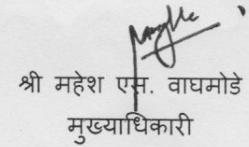 श्री महेश एस. वाघमोडे
मुख्याधिकारी